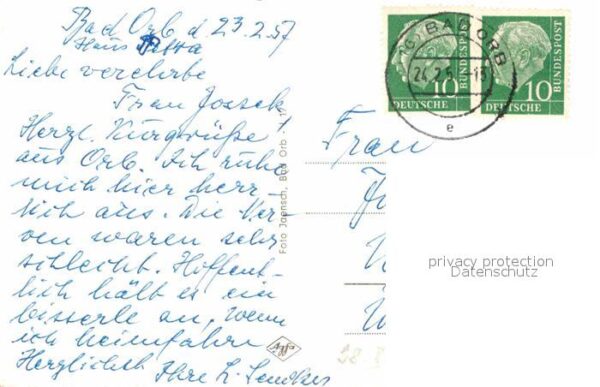 Bad Orb d. 23.2.57
Haus
Liebe verehrte
Frau Jossek
Herzl. Kurgrüße
aus Orb. Ich ruhe
mich hier herr-
lich aus. Die Ner-
ven waren sehr
schlecht. Hoffent-
lich hält es ein
bisserle an, wenn
ich heimfahre
Herzlichst Ihre L.
Foto Jaensch, Bad Orb
Frau
(16) BAD ORB
24.2.5
e
10
DEUTSCHE
BUNDESPOST
10
DEUTSCHE
BUNDESPOST
privacy protection
Datenschutz